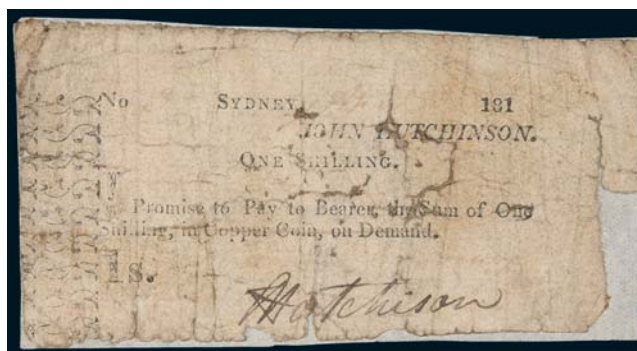 No SYDNEY, 181
JOHN HUTCHINSON.
ONE SHILLING.
Promise to Pay to Bearer, the Sum of One
Shilling, in Copper Coin, on Demand.
1 S.
Hutchison